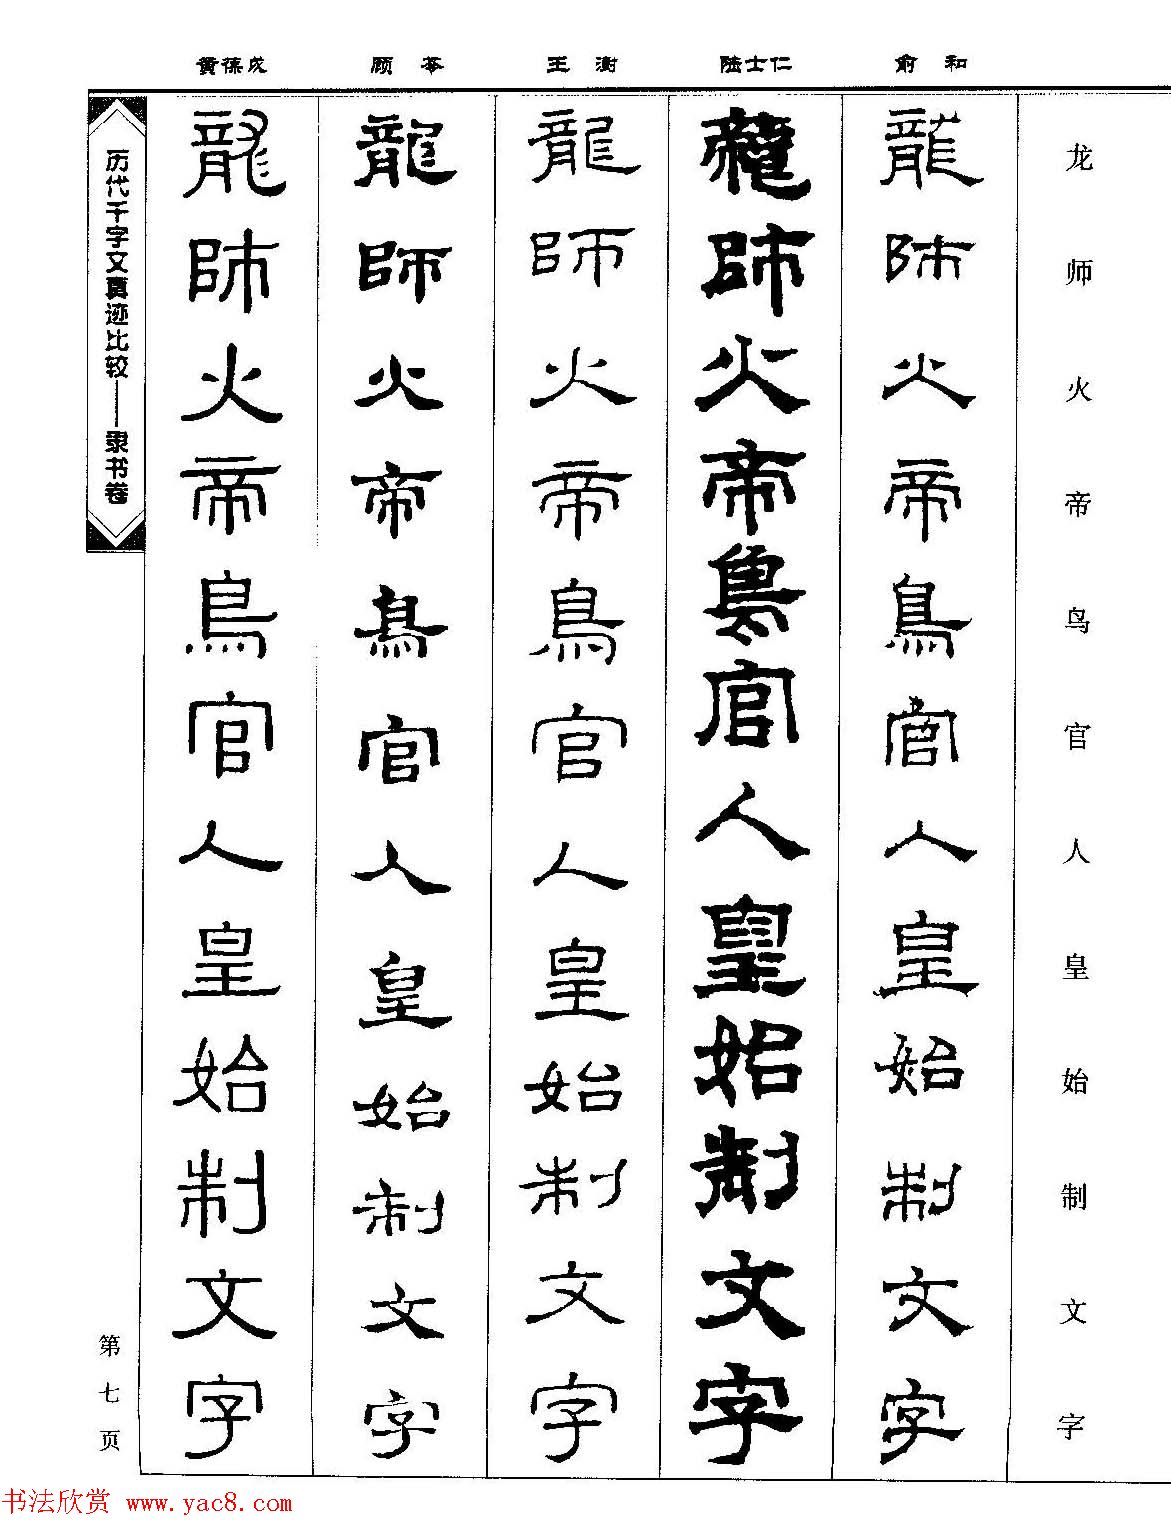 黄葆戉　顾苓　王澍　陆士仁　俞和
龙师火帝鸟官人皇始制文字
龍師火帝鳥官人皇始制文字
龍師火帝鳥官人皇始制文字
龍師火帝鳥官人皇始制文字
龍師火帝鳥官人皇始制文字
龍師火帝鳥官人皇始制文字
历代千字文真迹比较——隶书卷
第七页
书法欣赏 www.yac8.com